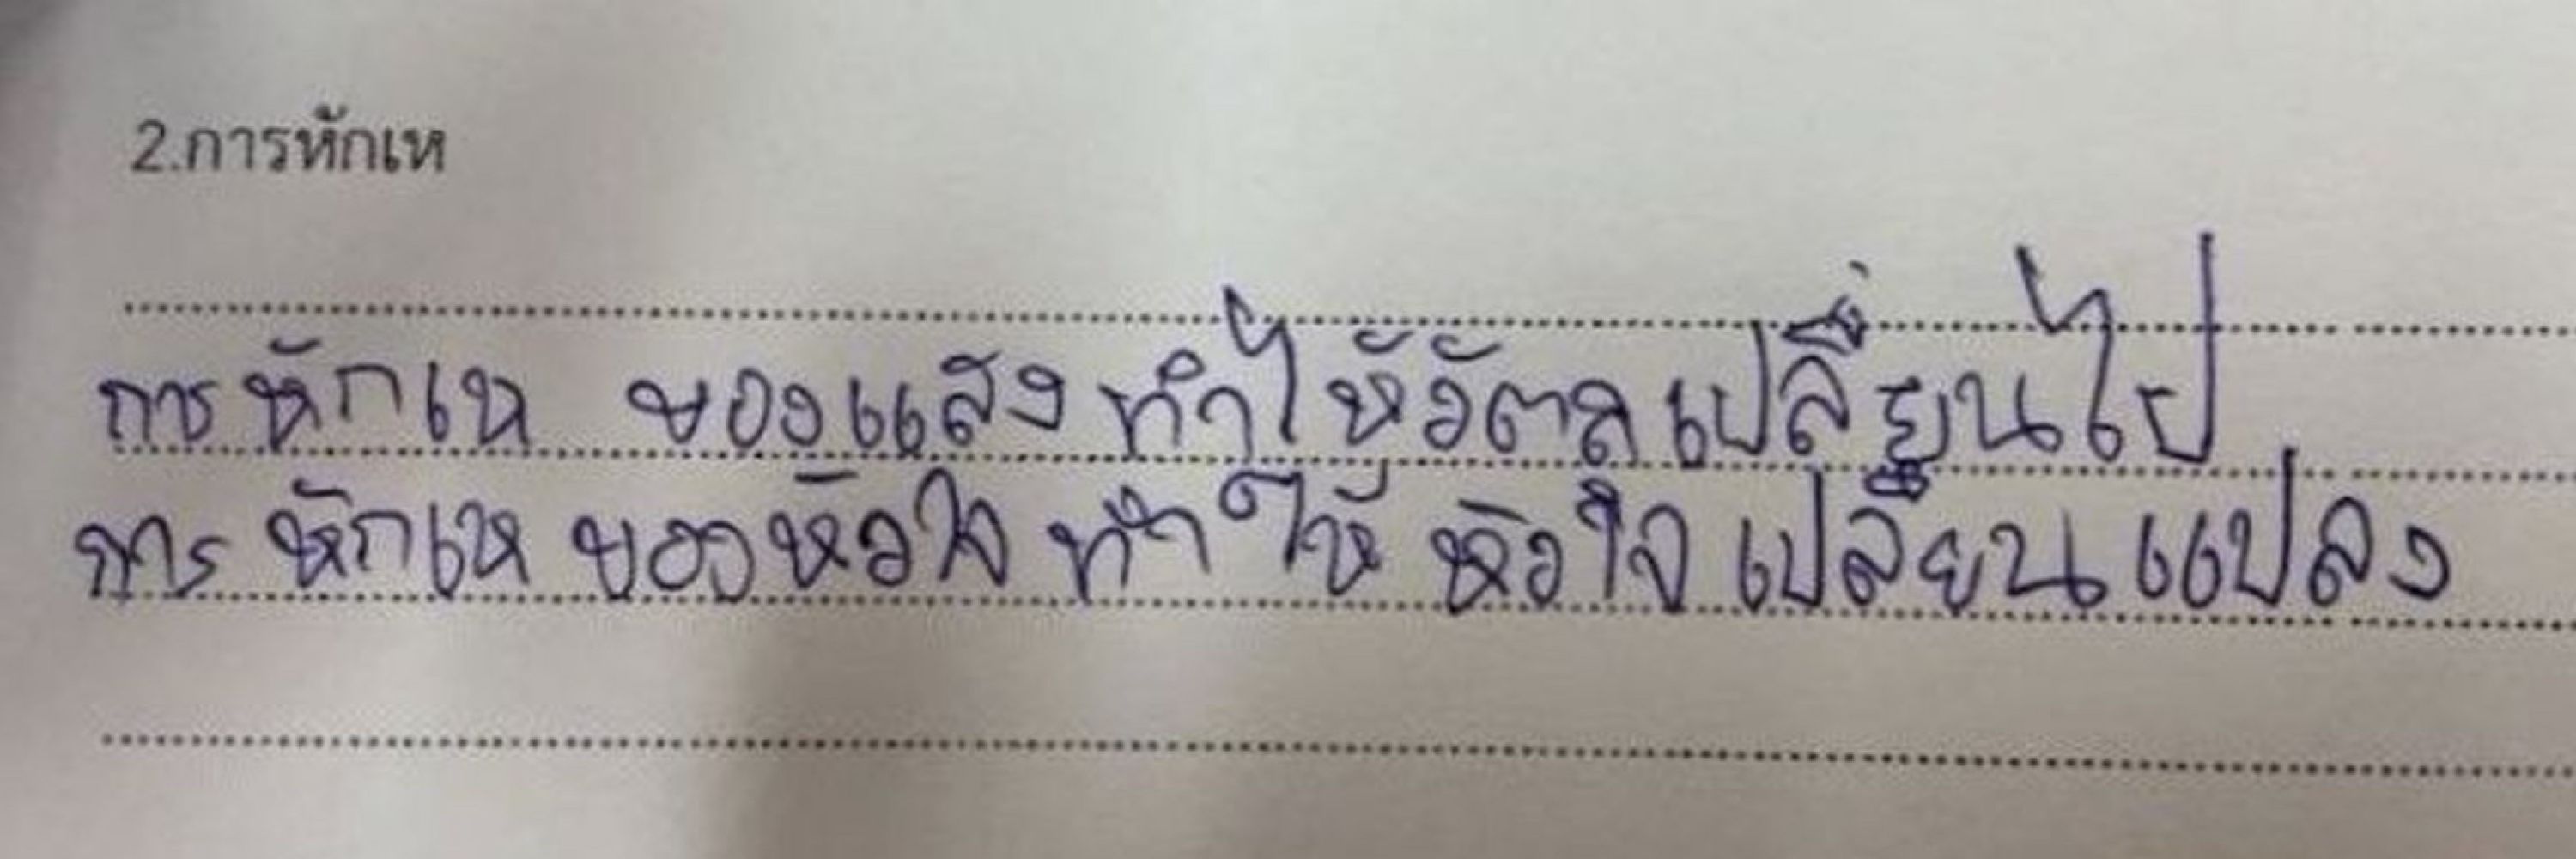 2.การหักเห
การหักเห ของแสง ทำไห้วัตถุเปลี่ยนไป
การ หักเห ของหัวใจ ทำให้ หัวใจ เปลี่ยนแปลง